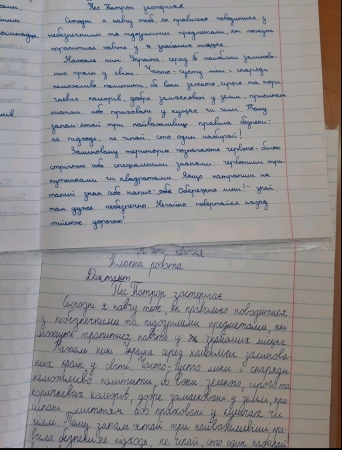 Пес Патрон застерігає
Сьогодні я навчу тебе, як правильно поводитися з
небезпечними та підозрілими предметами, які можуть
трапитися навіть у знайомих місцях.
Нажаль нині Україна серед найбільш заміно
ваних країн у світі. Часто-густо міни і снаряди
неможливо помітити, бо вони зеленого, сірого та корич
невих кольорів, добре замасковані у землі, присипані
листям або приховані у кущах чи гіллі. Тому
запам'ятай три найважливіші правила безпеки:
не підходь, не чіпай, клич один навкруги!
Заміновану територію позначають червоно-білою
стрічкою або спеціальними знаками: червоними три
кутниками чи квадратами. Якщо натрапиш на
такий знак або напис „Обережно міни!" – знай
там дуже небезпечно. Негайно повертайся назад
тією ж дорогою!
квітня
Класна робота
Диктант
Пес Патрон застерігає
Сьогодні я навчу тебе, як правильно поводитися
з небезпечними та підозрілими предметами, які
можуть трапитися навіть у знайомих місцях
Нажаль нині Україна серед найбільш замінова
них країн у світі. Часто-густо міни і снаряди
неможливо помітити, бо вони зеленого, сірого та
коричневих кольорів, добре замасковані у землі, при
сипані листям або приховані у кущах чи
гіллі. Тому запам'ятай три найважливіші пра
вила безпеки: не підходь, не чіпай,